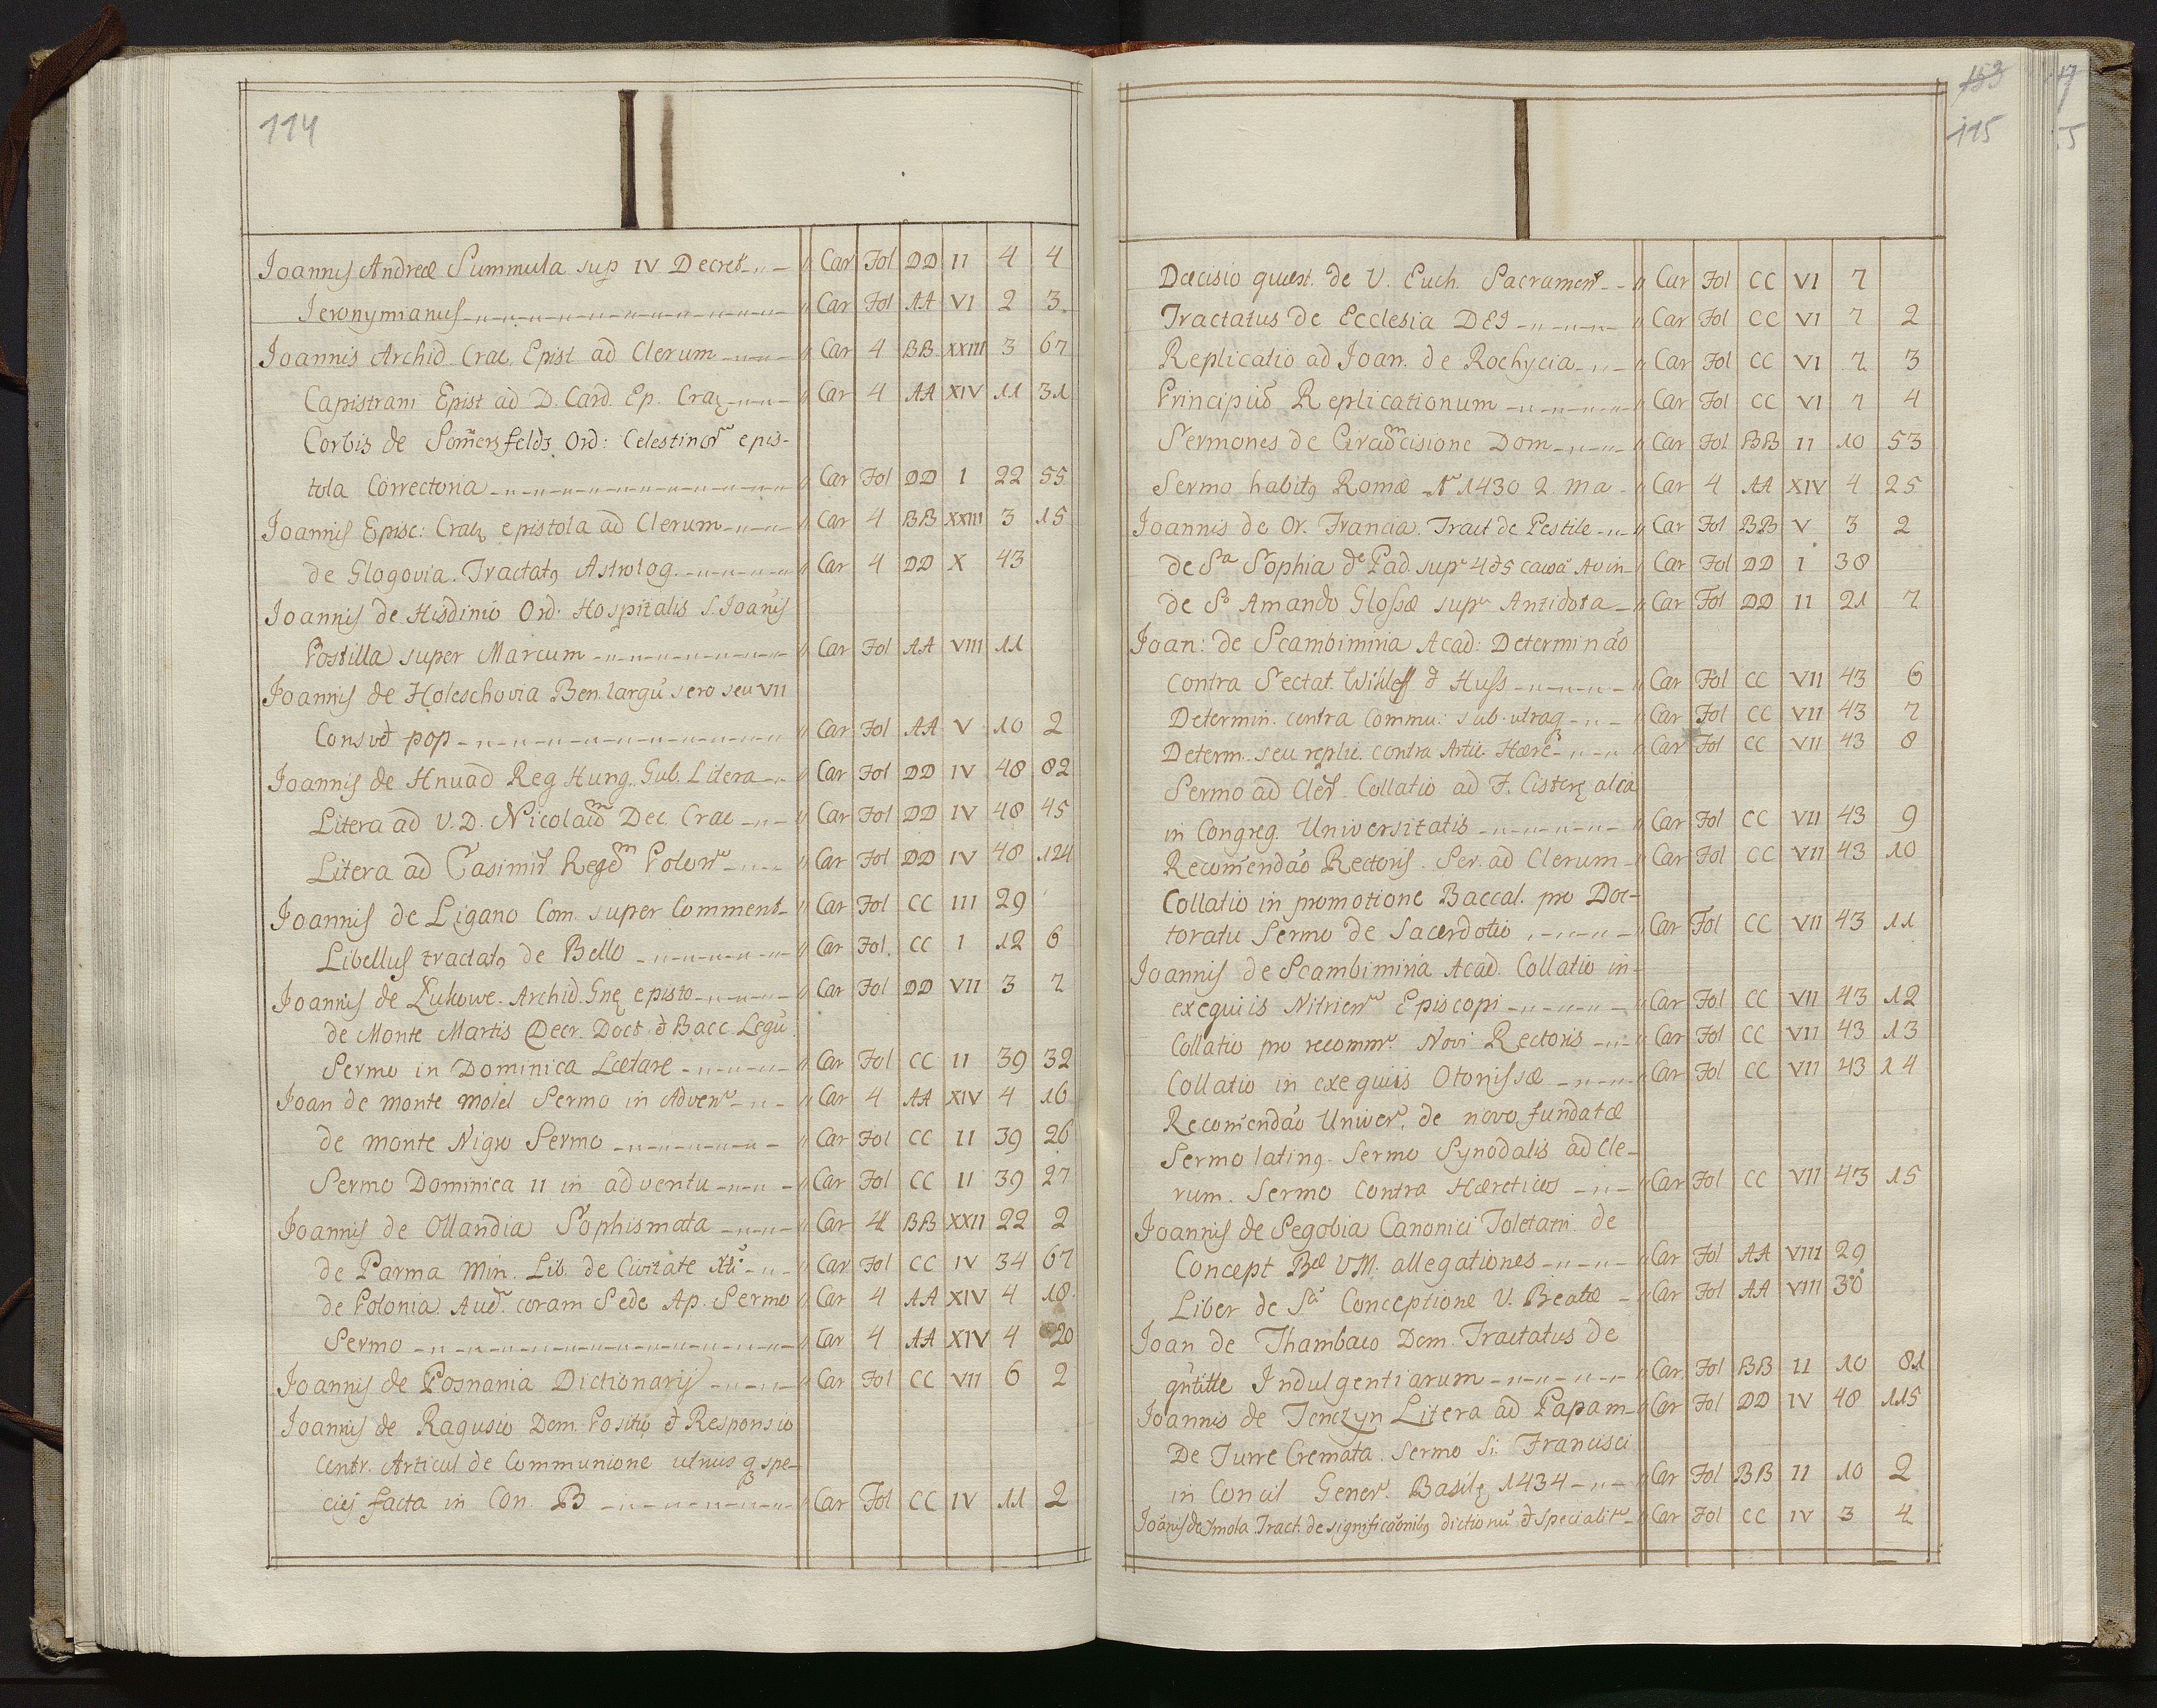 114
I
Joannis Andreæ Summula sup IV Decret " Car Fol DD II 4 4
Jeronymianus " Car Fol AA VI 2 3.
Joannis Archid. Crac. Epist ad Clerum " Car 4 BB XXIII 3 67
Capistrani Epist ad D. Card. Ep. Crac " Car 4 AA XIV 11 31
Corbis de Som̃ersfeldz Ord: Celestinor epis-
tola Correctoria " Car Fol DD I 22 55
Joannis Episc: Crac epistola ad Clerum " Car 4 BB XXIII 3 15
de Glogovia. Tractatꝯ Astrolog. " Car 4 DD X 43
Joannis de Hisdinio Ord. Hospitalis S. Joañis
Postilla super Marcum " Car Fol AA VIII 11
Joannis de Holeschovia Ben. largũ sero seu VII
Consvet pop " Car Fol AA V 10 2
Joannis de Hnuad Reg Hung. Gub. Litera " Car Fol DD IV 48 82
Litera ad V. D. Nicolaum Dec. Crac " Car Fol DD IV 48 45
Litera ad Casimir Regem Polon " Car Fol DD IV 48 124
Joannis de Ligano Com. super Comment " Car Fol CC III 29
Libellus tractatꝯ de Bello " Car Fol. CC I 12 6
Joannis de Lukowe. Archid. Gnę episto " Car Fol DD VII 3 7
de Monte Martis Decr. Doct & Bacc Legũ
Sermo in Dominica Lætare " Car Fol CC II 39 32
Joan de monte molel Sermo in Adven " Car 4 AA XIV 4 16
de monte Nigro Sermo " Car Fol CC II 39 26
Sermo Dominica II in adventu " Car Fol CC II 39 27
Joannis de Ollandia Sophismata " Car 4 BB XXII 22 2
de Parma Min. Lib. de Civitate Xti " Car Fol CC IV 34 67
de Polonia Aud. coram Sede Ap. Sermo " Car 4 AA XIV 4 18
Sermo " Car 4 AA XIV 4 20
Joannis de Posnania Dictionarij " Car Fol CC VII 6 2
Joannis de Ragusio Dom. Positio & Responsio
Contr. Articul de Communione utrius qꝫ spe-
ciej facta in Con. B " Car Fol CC IV 11 2
153
115
I
Decisio quæst. de V. Euch. Sacrament " Car Fol CC VI 7
Tractatus de Ecclesia DEI " Car Fol CC VI 7 2
Replicatio ad Joan. de Rochycia " Car Fol CC VI 7 3
Principiũ Replicationum " Car Fol CC VI 7 4
Sermones de Circumcisione Dom " Car Fol BB II 10 53
Sermo habitꝯ Romæ Aº 1430 2 Ma " Car 4 AA XIV 4 25
Joannis de Or. Francia. Tract de Pestile " Car Fol BB V 3 2
de Sta Sophia de Pad. supr 4 & 5 Avin " Car Fol DD I 38
de So Amando Glossæ supr Antidota " Car Fol DD II 21 7
Joan: de Scambimiria Acad: Determinão
contra Sectat. Wikleff & Huss " Car Fol CC VII 43 6
Determin. contra Commu: sub. utraqꝫ " Car Fol CC VII 43 7
Determ. seu replic. contra Artic. Hære " Car Fol CC VII 43 8
Sermo ad Cler. Collatio ad F. Cisterc alia
in Congreg. Universitatis " Car Fol CC VII 43 9
Recom̃endão Rectoris. Ser. ad Clerum " Car Fol CC VII 43 10
Collatio in promotione Baccal. pro Doc-
toratu Sermo de Sacerdotio " Car Fol CC VII 43 11
Joannis de Scambimiria Acad. Collatio in-
exequiis Nitrien Episcopi " Car Fol CC VII 43 12
Collatio pro recomm. Novi Rectoris " Car Fol CC VII 43 13
Collatio in exequiis Otonissæ " Car Fol CC VII 43 14
Recom̃endão Univer. de novo fundatæ
Sermo latinꝯ. Sermo Synodalis ad Cle-
rum. Sermo Contra Hæreticos " Car Fol CC VII 43 15
Joannis de Segobia Canonici Toletani de
Concept Bæ VM. allegationes " Car Fol AA VIII 29
Liber de Sa Conceptione V. Beatæ " Car Fol AA VIII 30
Joan de Thambaco Dom. Tractatus de
qntitte Indulgentiarum " Car Fol BB II 10 81
Joannis de Tenczyn Litera ad Papam " Car Fol DD IV 48 115
De Turre Cremata. Sermo Si Francisci
in Concil Gener. Basilę 1434 " Car Fol BB II 10 2
Joãnis de Ymola Tract. de significãonibꝯ dictionũ & specialit " Car Fol CC IV 3 4